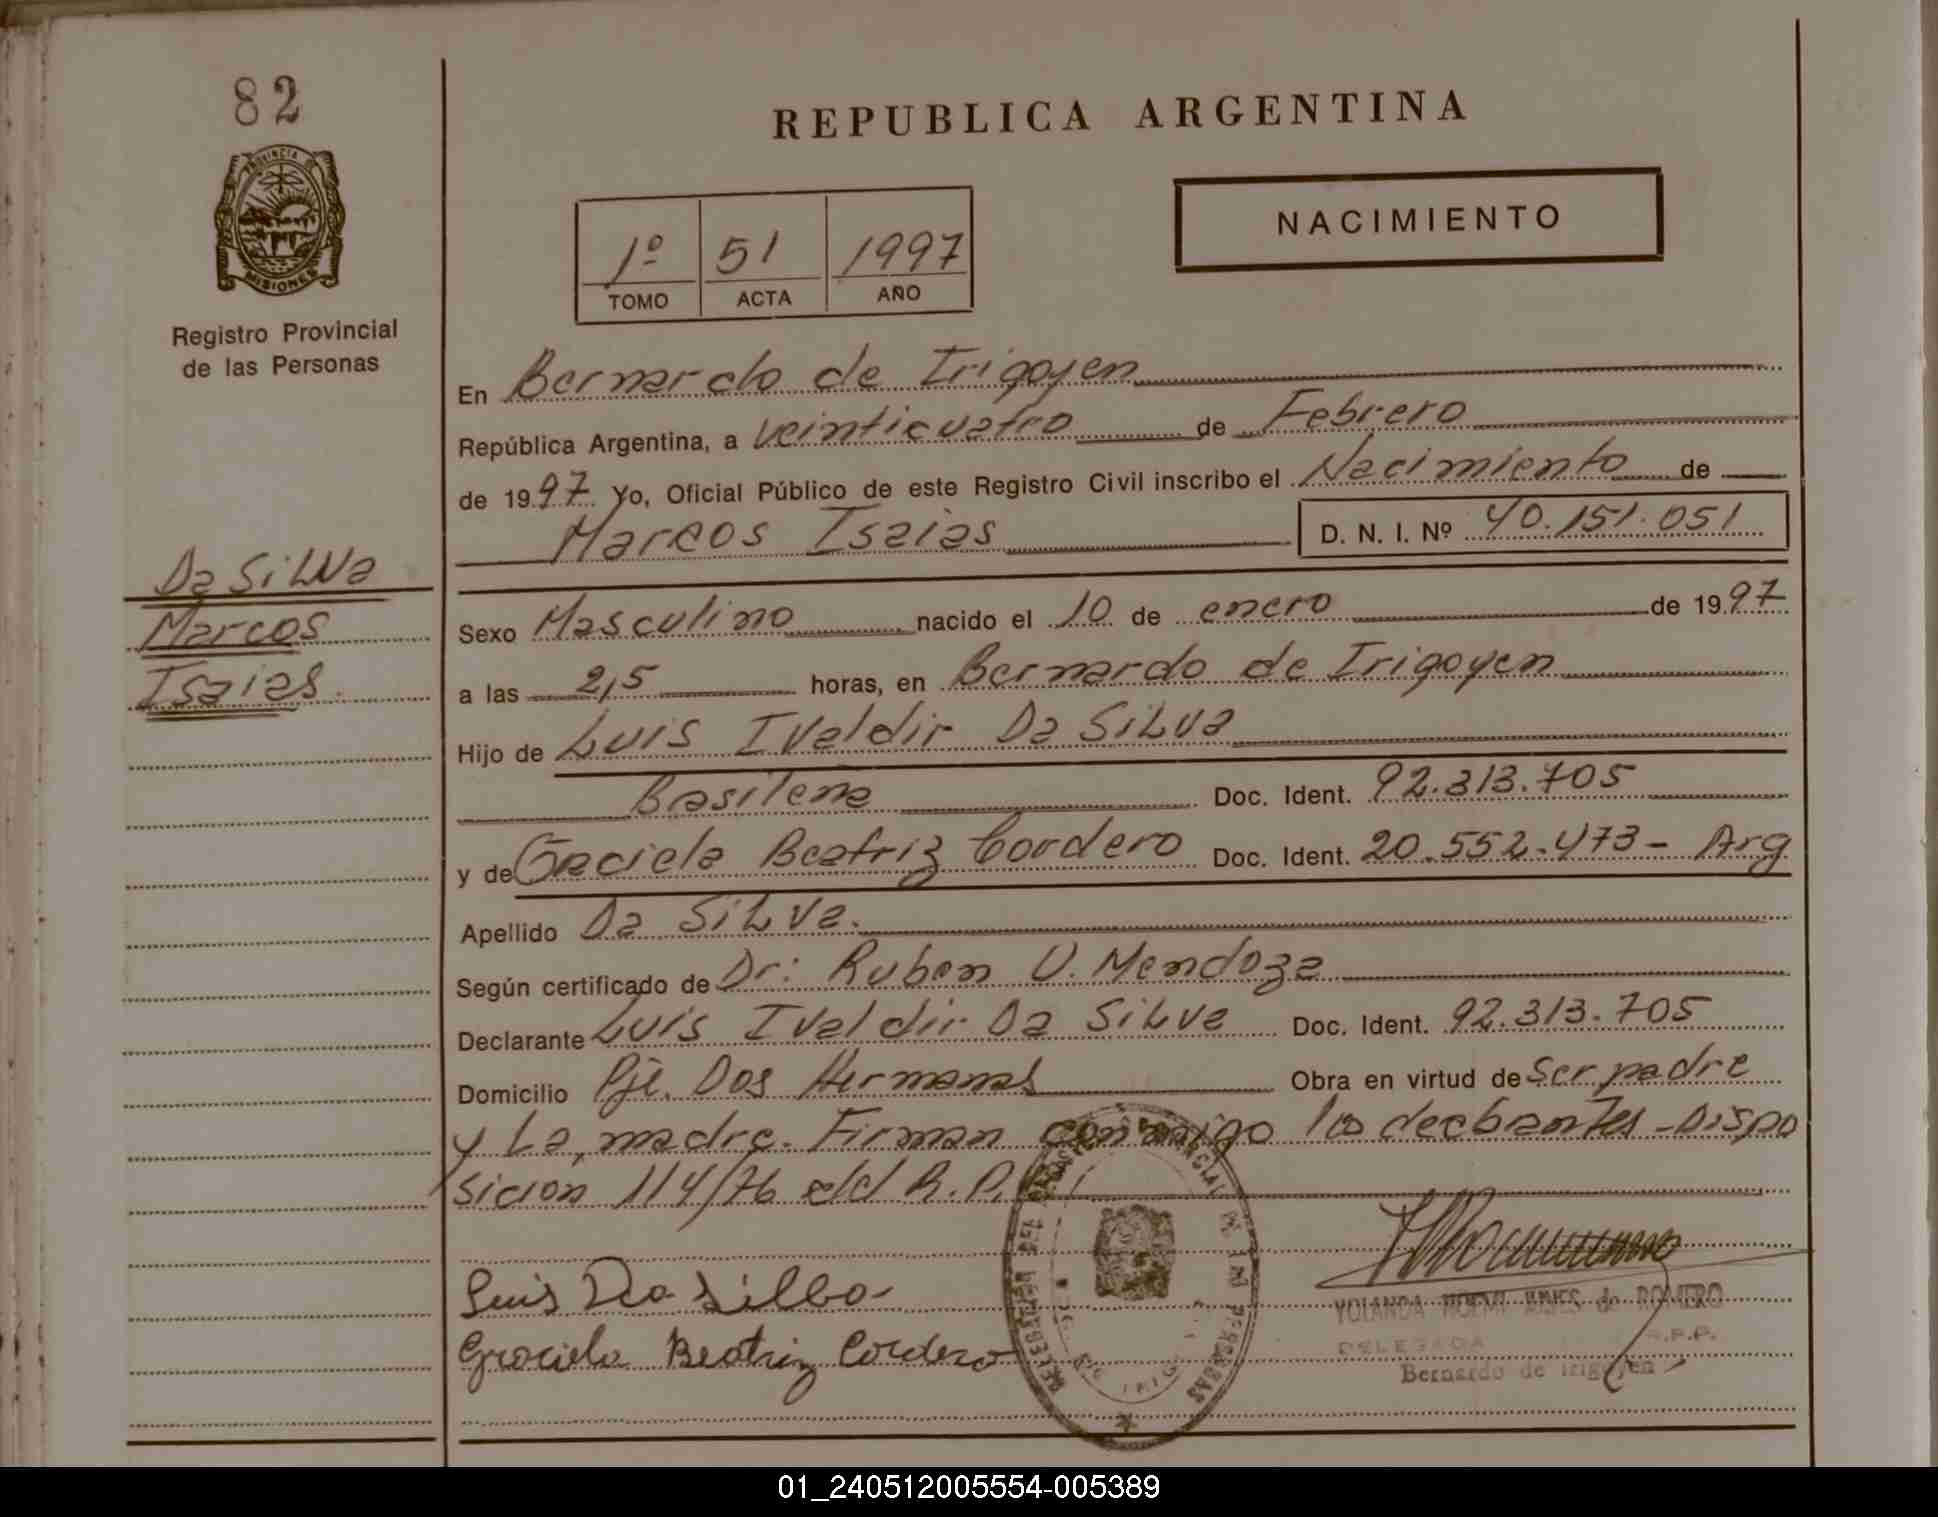 82
REPUBLICA ARGENTINA
PROVINCIA DE
MISIONES
Registro Provincial
de las Personas
1º 51 1997
TOMO ACTA AÑO
NACIMIENTO
En Bernardo de Irigoyen
República Argentina, a veinticuatro de Febrero
de 1997 Yo, Oficial Público de este Registro Civil inscribo el Nacimiento de
Marcos Isaias D. N. I. Nº 40.151.051
Da SiLva
Marcos
Isaias
Sexo Masculino nacido el 10 de enero de 1997
a las 2,5 horas, en Bernardo de Irigoyen
Hijo de Luis Ivaldir Da SiLva
Brasilena Doc. Ident. 92.313.705
y de Graciela Beatriz Cordero Doc. Ident. 20.552.473- Arg
Apellido Da SiLva.
Según certificado de Dr: Ruben V. Mendoza
Declarante Luis Ivaldir Da SiLva Doc. Ident. 92.313.705
Domicilio Pje. Dos Hermanas Obra en virtud de Ser padre
y La madre. Firman conmigo los declarantes - Dispo
sicion 114/76 del R.P.
Luis Da Silba
Graciela Beatriz Cordero
YOLANDA NOEMI de ROMERO
DELEGADA R.P.P.
Bernardo de Irigoyen
01_240512005554-005389